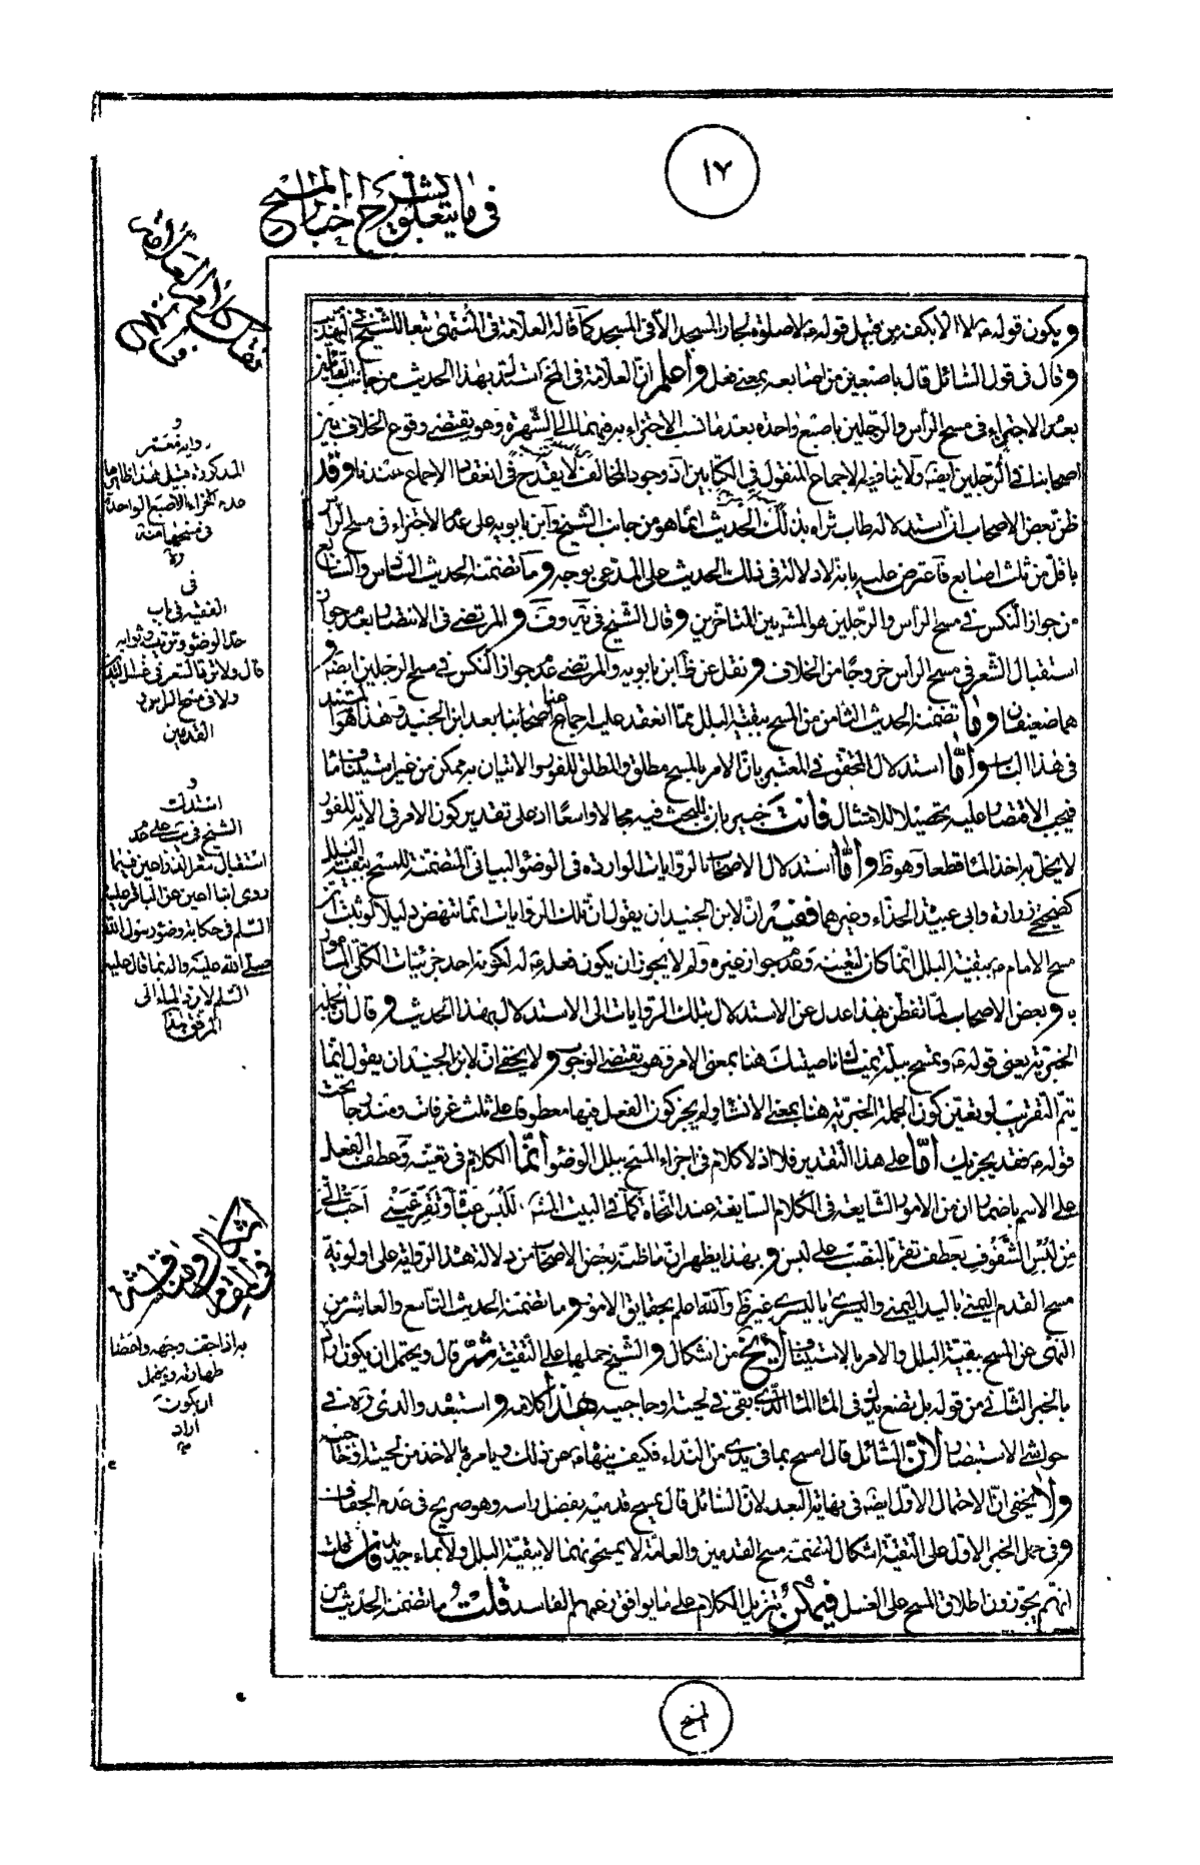 ١٧
في ما يتعلق بشرح اخبار المسح
و يكون قوله ع لا الا بكفه من قبيل قوله ع لا صلوة لجار المسجد الا في المسجد كما قاله العلامة في المنتهى تبعا للشيخ في التهذيب
و قال في قول السائل قال باصبعين من اصابعه بمعنى فعل و اعلم ان العلامة في المخ استدل بهذا الحديث من جانب القائلين
بعدم الاجتزاء في مسح الرأس والرجلين باصبع واحدة بعد ما نسب الاجتزاء به فيهما الى الشهرة وهو يقتضي وقوع الخلاف بين
اصحابنا في الرجلين ايضا ولا ينافيه الاجماع المنقول في الكتابين اذ وجود المخالف لا يقدح في انعقاد الاجماع عندنا و قد
ظن بعض الاصحاب ان استدلاله طاب ثراه بذلك الحديث انما هو من جانب الشيخ وابن بابويه على عدم الاجتزاء في مسح الرأس
باقل من ثلث اصابع فاعترض عليه بانه لا دلالة في ذلك الحديث على المدعى بوجه و ما تضمنه الحديث السادس والسابع
من جواز النكس في مسح الرأس والرجلين هو المشهور بين المتأخرين و قال الشيخ في يه وف و المرتضى في الانتصار بعدم جواز
استقبال الشعر في مسح الرأس خروجا من الخلاف و نقل عن ظ ابن بابويه والمرتضى عدم جواز النكس في مسح الرجلين ايضا و
هما ضعيفان و ما تضمنه الحديث الثامن من المسح ببقية البلل مما انعقد عليه اجماع اصحابنا بعد ابن الجنيد و هذا هو المستند
في هذا الباب و اما استدلال المحقق في المعتبر بان الامر بالمسح مطلق والمطلق للفور والاتيان به ممكن من غير استيناف ماء
فيجب الاقتصار عليه تحصيلا للامتثال فانت خبير بان للبحث فيه مجالا واسعا اذ على تقدير كون الامر في الاية للفور
لا يخل به اخذ الماء قطعا وهو ظ و اما استدلال الاصحاب بالروايات الواردة في الوضوء البياني المتضمنة للمسح ببقية البلل
كصحيحتي زرارة وابي عبيدة الحذاء وغيرهما ففيه ان لابن الجنيد ان يقول ان تلك الروايات انما تنهض دليلا لو ثبت ان
مسح الامام ع ببقية البلل انما كان لتعينه وعدم جواز غيره ولم لا يجوز ان يكون فعله ع له لكونه احد جزئيات الكلي المأمور
به و بعض الاصحاب لما تفطن بهذا عدل عن الاستدلال بتلك الروايات الى الاستدلال بهذا الحديث و قال ان الجملة
الخبرية يعني قوله ع وتمسح ببلة يمناك ناصيتك هنا بمعنى الامر و هو يقتضي الوجوب و لا يخفى ان لابن الجنيد ان يقول انما
يتم التقريب لو تعين كون الجملة الخبرية هنا بمعنى الانشاء ولم يجز كون الفعل فيها معطوفا على ثلث غرفات ومندرجا تحت
قوله ع فقد يجزيك اما على هذا التقدير فلا اذ لا كلام في اجزاء المسح ببلل الوضوء انما الكلام في تعينه وعطف الفعل
على الاسم باضمار ان من الامور الشايعة في الكلام السايغة عند النحاة كما في البيت المشهور للبس عباءة وتقر عيني احب الي
من لبس الشفوف بعطف تقر بالنصب على لبس و بهذا يظهر ان ما ظنه بعض الاصحاب من دلالة هذه الرواية على اولوية
مسح القدم اليمنى باليد اليمنى واليسرى باليسرى غير ظ والله اعلم بحقايق الامور و ما تضمنه الحديث التاسع والعاشر من
النهي عن المسح ببقية البلل والامر بالاستيناف لا يخ من اشكال و الشيخ حملهما على التقية ثم قال ويحتمل ان يكون اراد
بالخبر الثاني من قوله بل تضع يدك في الماء الماء الذي بقي في لحيته او حاجبيه هذا كلامه و استبعده والدي ره في
حواشي الاستبصار لان السائل قال امسح بما في يدي من النداء فكيف ينهاه ع عن ذلك ويأمره بالاخذ من لحيته او حاجبيه
و لا يخفى ان الاحتمال الاول ايضا في نهاية البعد لان السائل قال يمسح قدميه بفضل راسه وهو صريح في عدم الجفاف
و في حمل الخبر الاول على التقية اشكال لتضمنه مسح القدمين والعامة لا يمسحونهما لا ببقية البلل ولا بماء جديد فان قلت
انهم يجوزون اطلاق المسح على الغسل فيمكن تنزيل الكلام على ما يوافق زعمهم الفاسد قلت ما تضمنه الحديث من
و
رواية معمر
المذكورة قبيل هذا ظاهرها
عدم اجزاء الاصبع الواحدة
في مسحهما منه
ره
في
الفقيه في باب
حد الوضوء وترتيبه وثوابه
قال ولا ترد الشعر في غسل اليدين
ولا في مسح الراس و
القدمين
و
استدل
الشيخ في يب على عدم
استقبال شعر الذراعين فيما
روى ابنا اعين عن الباقر عليه
السلم في حكاية وضوء رسول الله
صلى الله عليه واله بما قال عليه
السلم لا يرد الماء الى
المرفق منه
اشكال
به اذا جف وجهه واعضا
طهارته ويحتمل
ان يكون
اراد
به
المسح